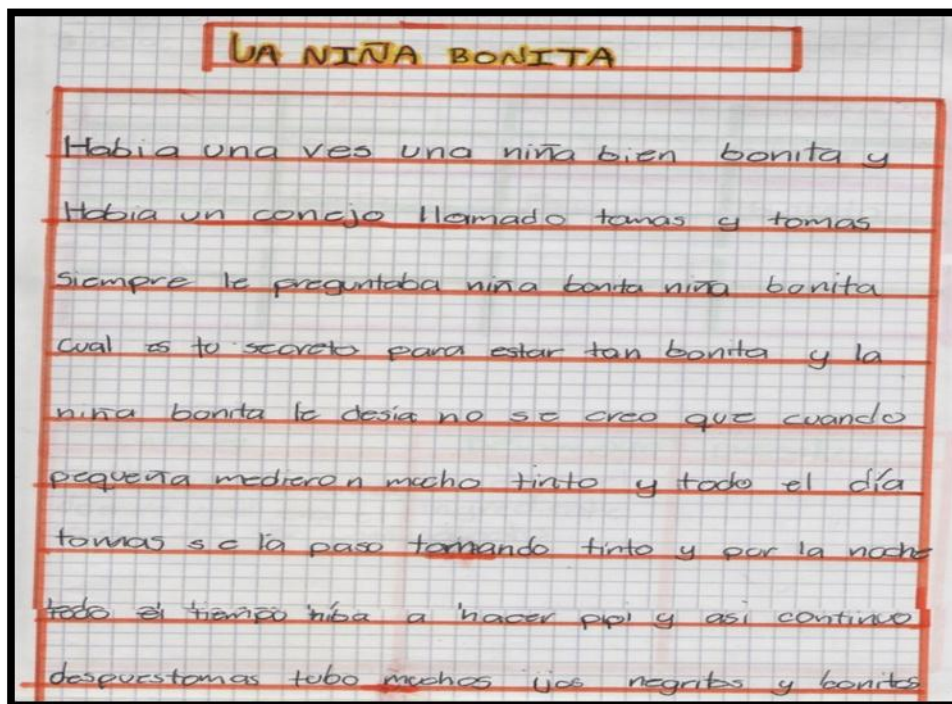 LA NIÑA BONITA
Habia una ves una niña bien bonita y
Habia un conejo llamado tomas y tomas
siempre le preguntaba niña bonita niña bonita
cual es tu secreto para estar tan bonita y la
niña bonita le desia no se creo que cuando
pequeña medieron mucho tinto y todo el día
tomas se la paso tomando tinto y por la noche
todo el tiempo hiba a hacer pipi y asi continuo
despuestomas tubo muchos ijos negritos y bonitos